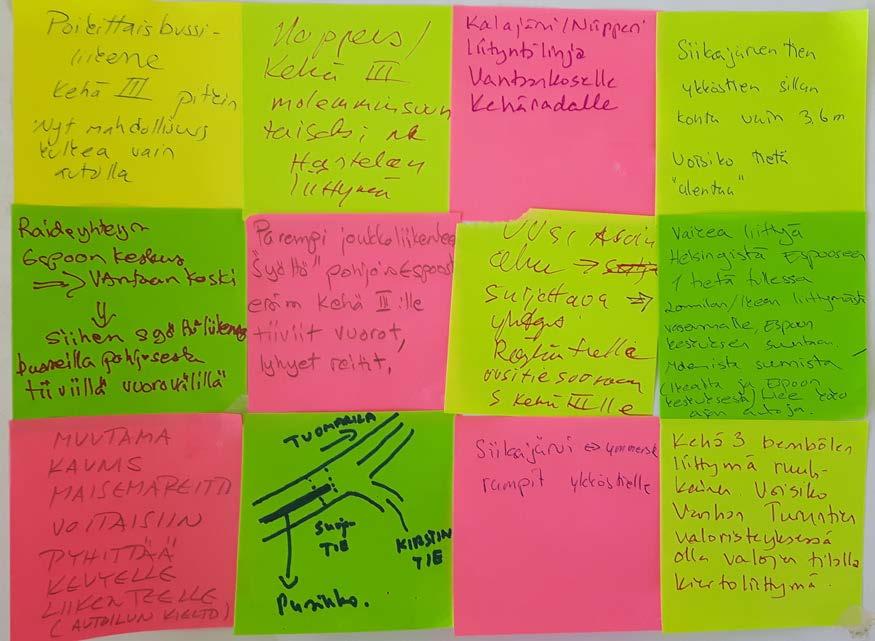 Poikittaisbussi-
liikenne
Kehä III pitkin
Nyt mahdollisuus
kulkea vain
autolla
Kehä III
molemminsuun
taiseksi
liittymä
Kalajärvi/Niipperi
liityntälinja
Vantaankoselle
Kehäradalle
Siikajärventien
ykköstien sillan
korkeus vain 3,6 m
Voisiko tietä
"alentaa"
Raideyhteys
Espoon keskus
⇒ Vantaankoski
⇓
Siihen syöttöliikenne
busseilla pohjoisesta
tiiviillä vuorovälillä
Parempi joukkoliikenteen
"syöttö" pohjois Espoosta
esim Kehä III:lle
tiiviit vuorot,
lyhyet reitit,
UUSI
suljettava ⇒
yhteys
uusitie suoraan
kehä III lle
Vaikea liittyä
Helsingistä Espooseen
1 tietä tullessa
liittymästä
vasemmalle, Espoon
keskuksen suuntaan.
(Ikealta ja Espoon
keskuksesta) tulee koko
ajan autoja.
MUUTAMA
KAUNIS
MAISEMAREITTI
VOITAISIIN
PYHITTÄÄ
KEVYELLE
LIIKENTEELLE
(AUTOILUN KIELTO)
TUOMARILA
TIE
KIRSTIIN
TIE
Siikajärvi ⇔
rampit ykköstielle
Kehä 3 bembölen
liittymä ruuh-
kainen. Voisiko
Vanhan Turuntien
valoristeyksessä
olla valojen tilalla
kiertoliittymä.